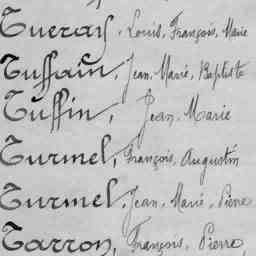 Tueray, Louis, François, Marie
Tuffain, Jean, Marié, Baptiste
Tuffin, Jean-Marie
Turmel, François, Augustin
Turmel, Jean, Marié, Pierre
Tarron, François, Pierre,